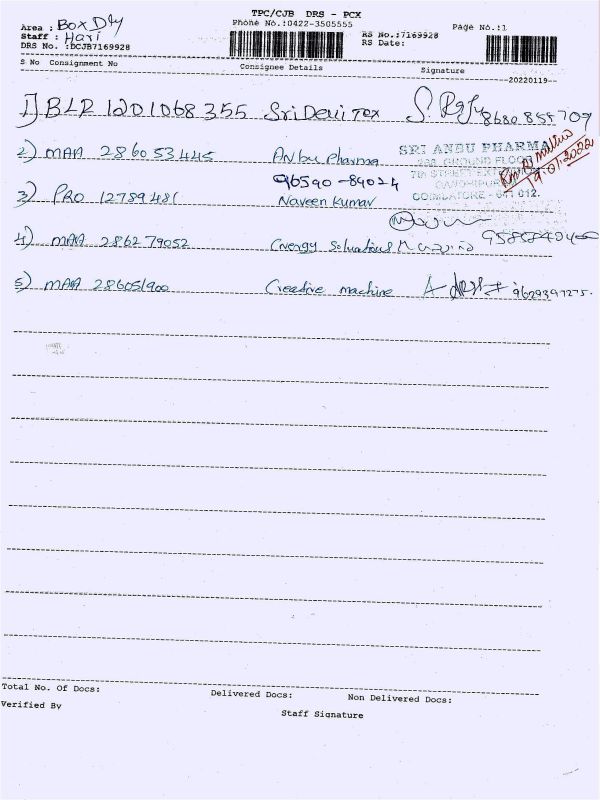 TPC/CJB DRS - PCX
Phone No.:0422-3505555
Page No.:1
Area : Box Dly
Staff : Hari
DRS No. :DCJB7169928
RS No.:7169928
RS Date:
S No Consignment No Consignee Details Signature
20220119
1) BLR 1201068355 Sri Devi Tex S. Raju 8680 855709
2) MAA 286053445 Anbu Pharma
SRI ANBU PHARMA
GROUND FLOOR
7TH STREET
GANDHIPUR
COIMBATORE - 641 012.
19.01.2022
96590-84024
3) PRO 12789481 Naveen Kumar
4) MAA 286279052 Energy Solutions
5) MAA 286051900 Creative machine 9629397275.
Total No. Of Docs: Delivered Docs: Non Delivered Docs:
Verified By
Staff Signature